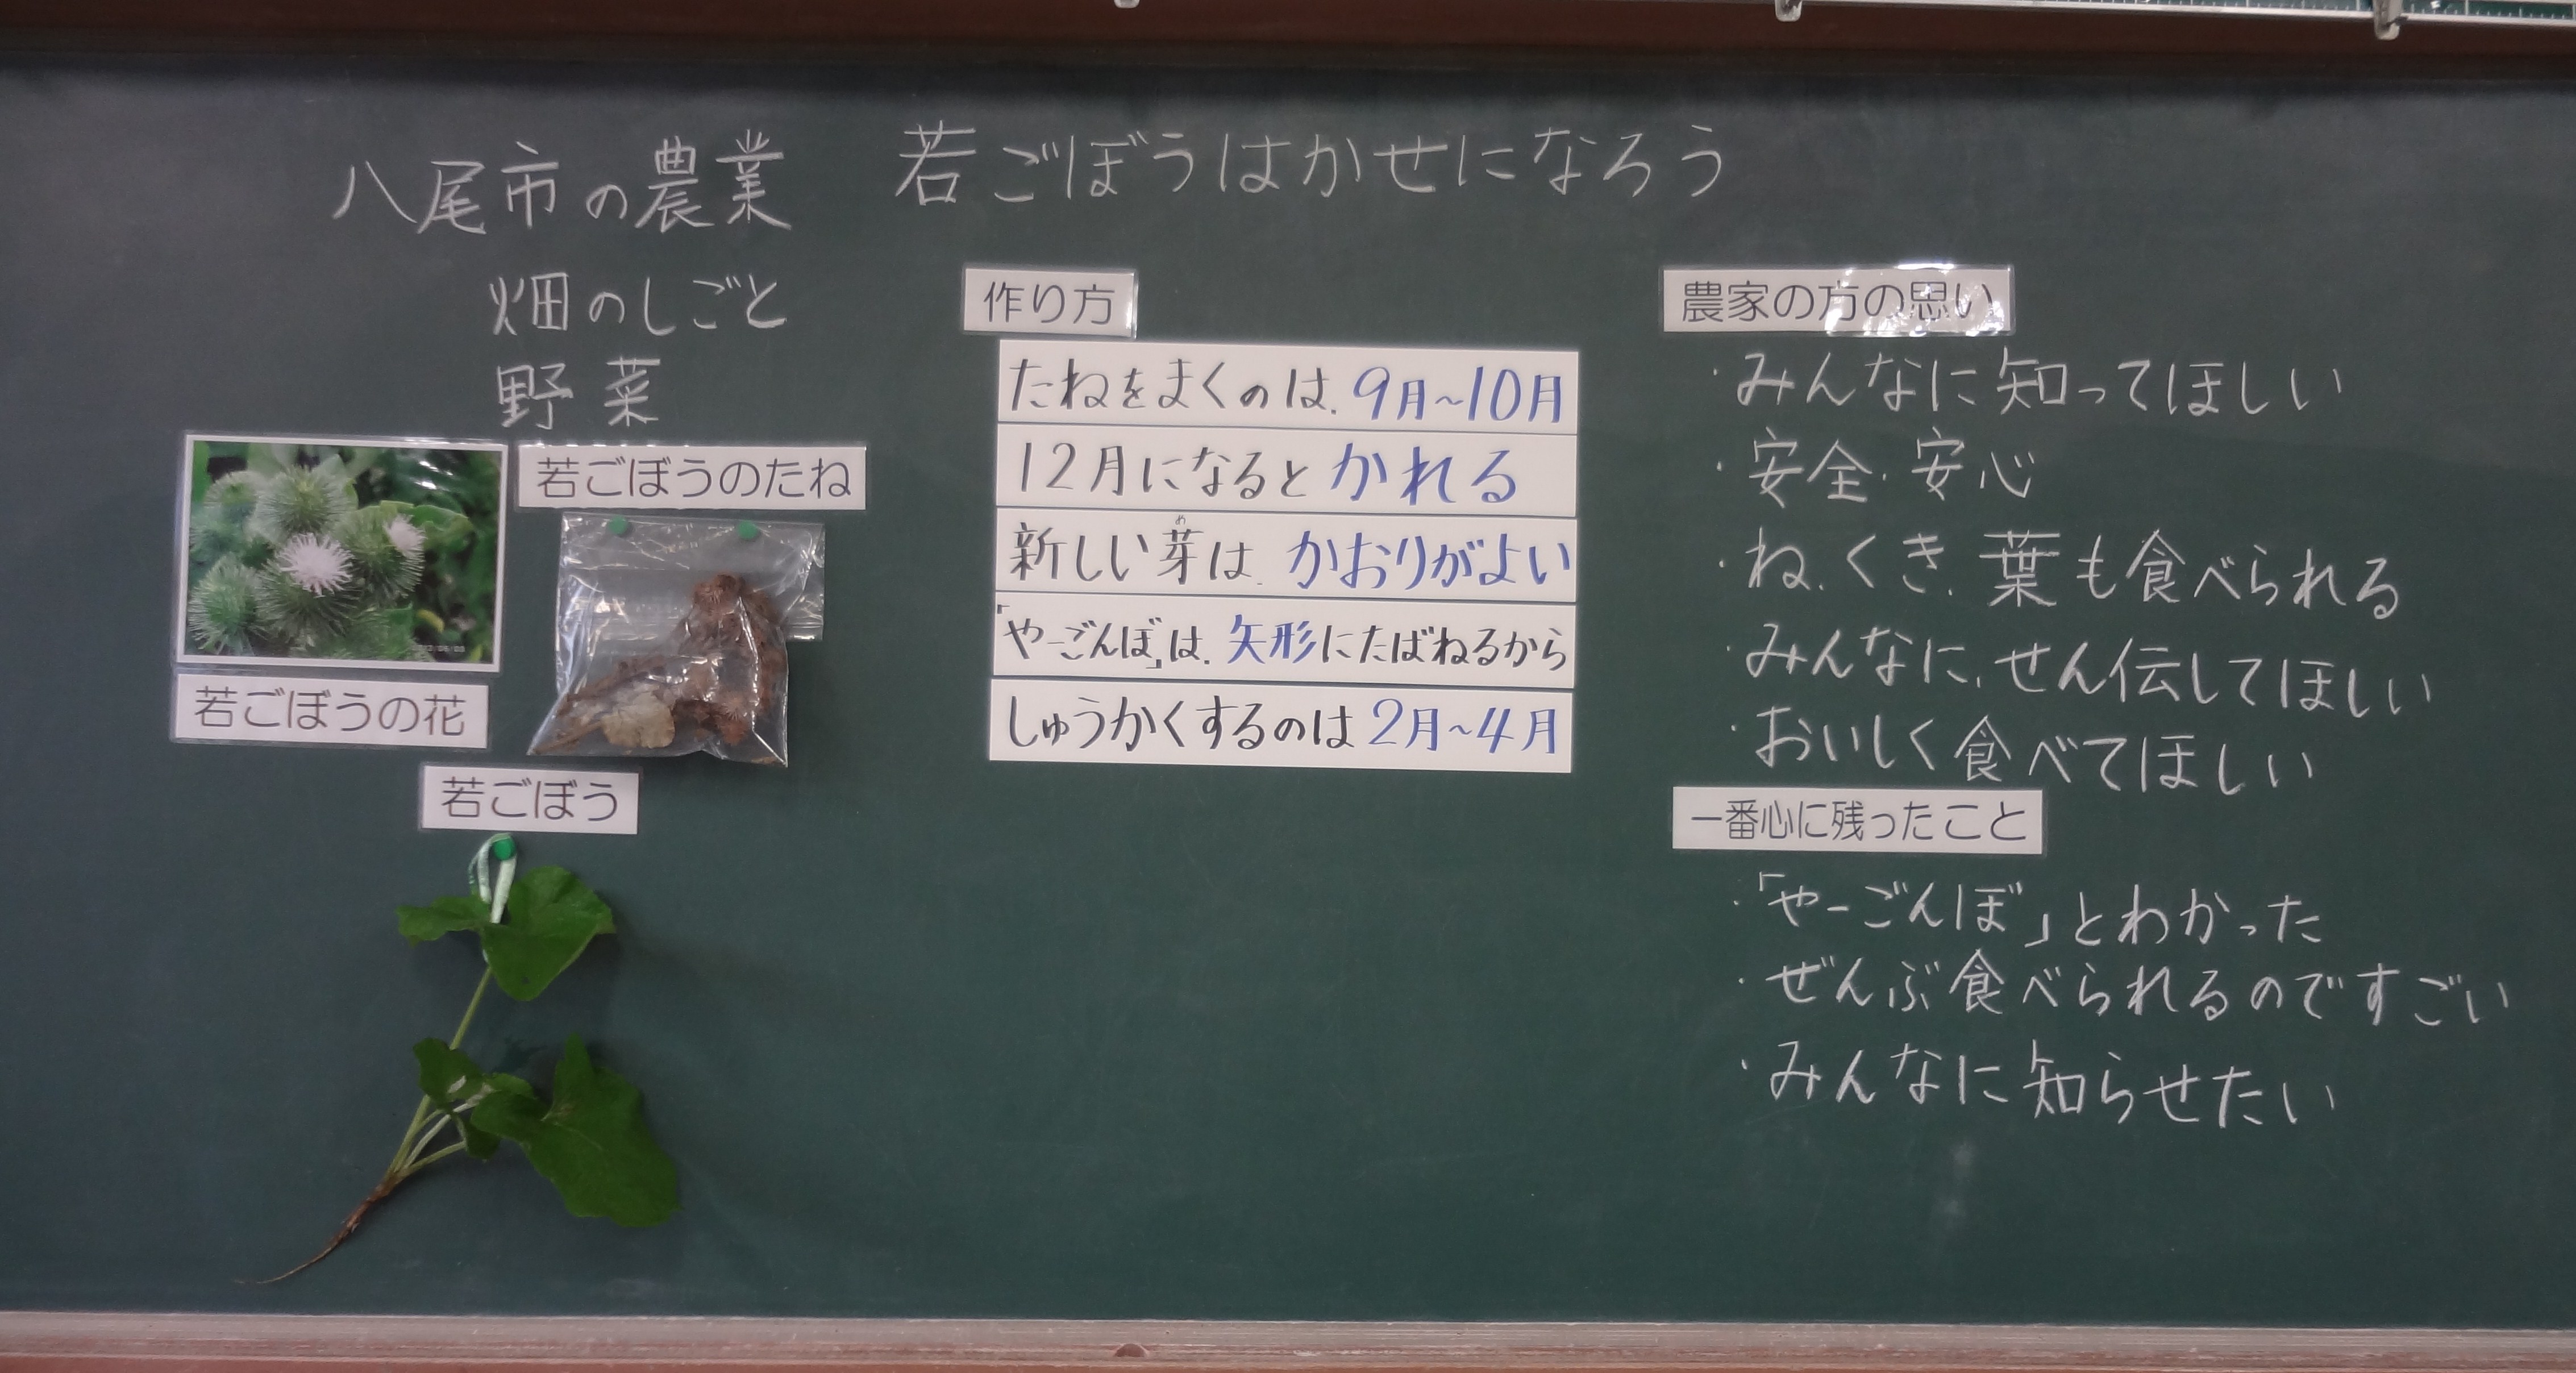 八尾市の農業 若ごぼうはかせになろう
畑のしごと
野菜
若ごぼうのたね
若ごぼうの花
若ごぼう
作り方
たねをまくのは、9月~10月
12月になるとかれる
新しい芽は、かおりがよい
め
「やーごんぼ」は、矢形にたばねるから
しゅうかくするのは2月~4月
農家の方の思い
・みんなに知ってほしい
・安全・安心
・ね、くき、葉も食べられる
・みんなに、せん伝してほしい
・おいしく食べてほしい
一番心に残ったこと
・「やーごんぼ」とわかった
・ぜんぶ食べられるのですごい
・みんなに知らせたい